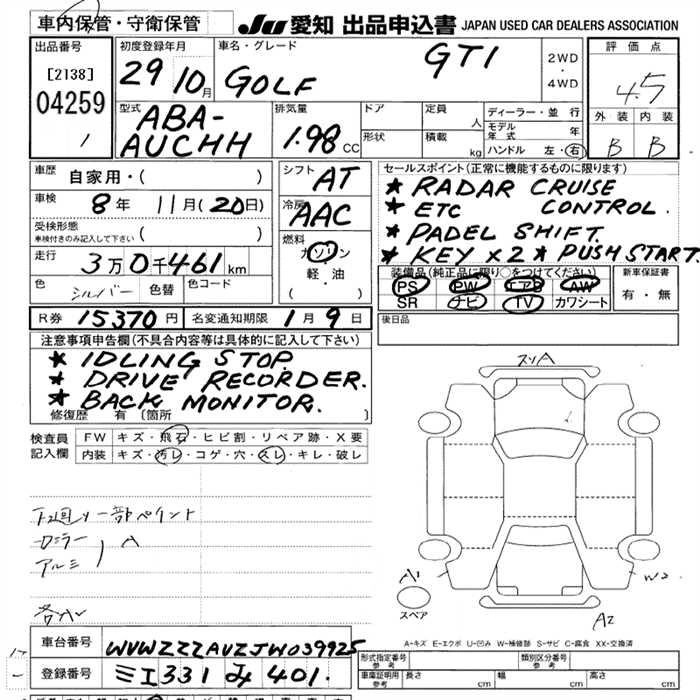 車内保管・守衛保管
JU 愛知 出品申込書 JAPAN USED CAR DEALERS ASSOCIATION
出品番号
[2138]
04259
1
初度登録年月
29 10月
車名・グレード
GOLF GTI
2WD
・
4WD
評価点
4.5
外装 内装
B B
型式
ABA-
AUCHH
排気量
1.98 CC
ドア
形状
定員 人
積載 kg
ディーラー・並行
モデル年式 年
ハンドル 左・右
車歴
自家用・( )
車検
8年 11月(20日)
受検形態
車検付きのみ記入して下さい ( )
走行
3万0千461km
色
シルバー
色替
色コード
シフト
AT
冷房
AAC
燃料
ガソリン
軽・油
( ・ )
セールスポイント(正常に機能するものに限ります)
★ RADAR CRUISE
★ ETC CONTROL.
★ PADEL SHIFT.
★ KEY×2 ★ PUSH START.
装備品(純正品に限り○をつけてください)
PS PW エアB AW
SR ナビ TV カワシート
新車保証書
有・無
R券 15370円 名変通知期限 1月9日
後日品
注意事項申告欄(不具合内容等は具体的に記入して下さい)
★ IDLING STOP.
★ DRIVE RECORDER.
★ BACK MONITOR.
修復歴 有 〔箇所
検査員
記入欄
FW キズ・飛石・ヒビ割・リペア跡・X要
内装 キズ・汚レ・コゲ・穴・スレ・キレ・破レ
下廻り一部ペイント
ミラー
アルミ
A
スリA
A1
スペア
W2
A2
A-キズ E-エクボ U-凹み W-補修跡 S-サビ C-腐食 XX-交換済
車台番号
WVWZZZAUZJW039925
登録番号
三重 331 み 401.
形式指定番号
参考
類別区分番号
参考
車庫証明用
参考
長さ cm
幅 cm
高さ cm